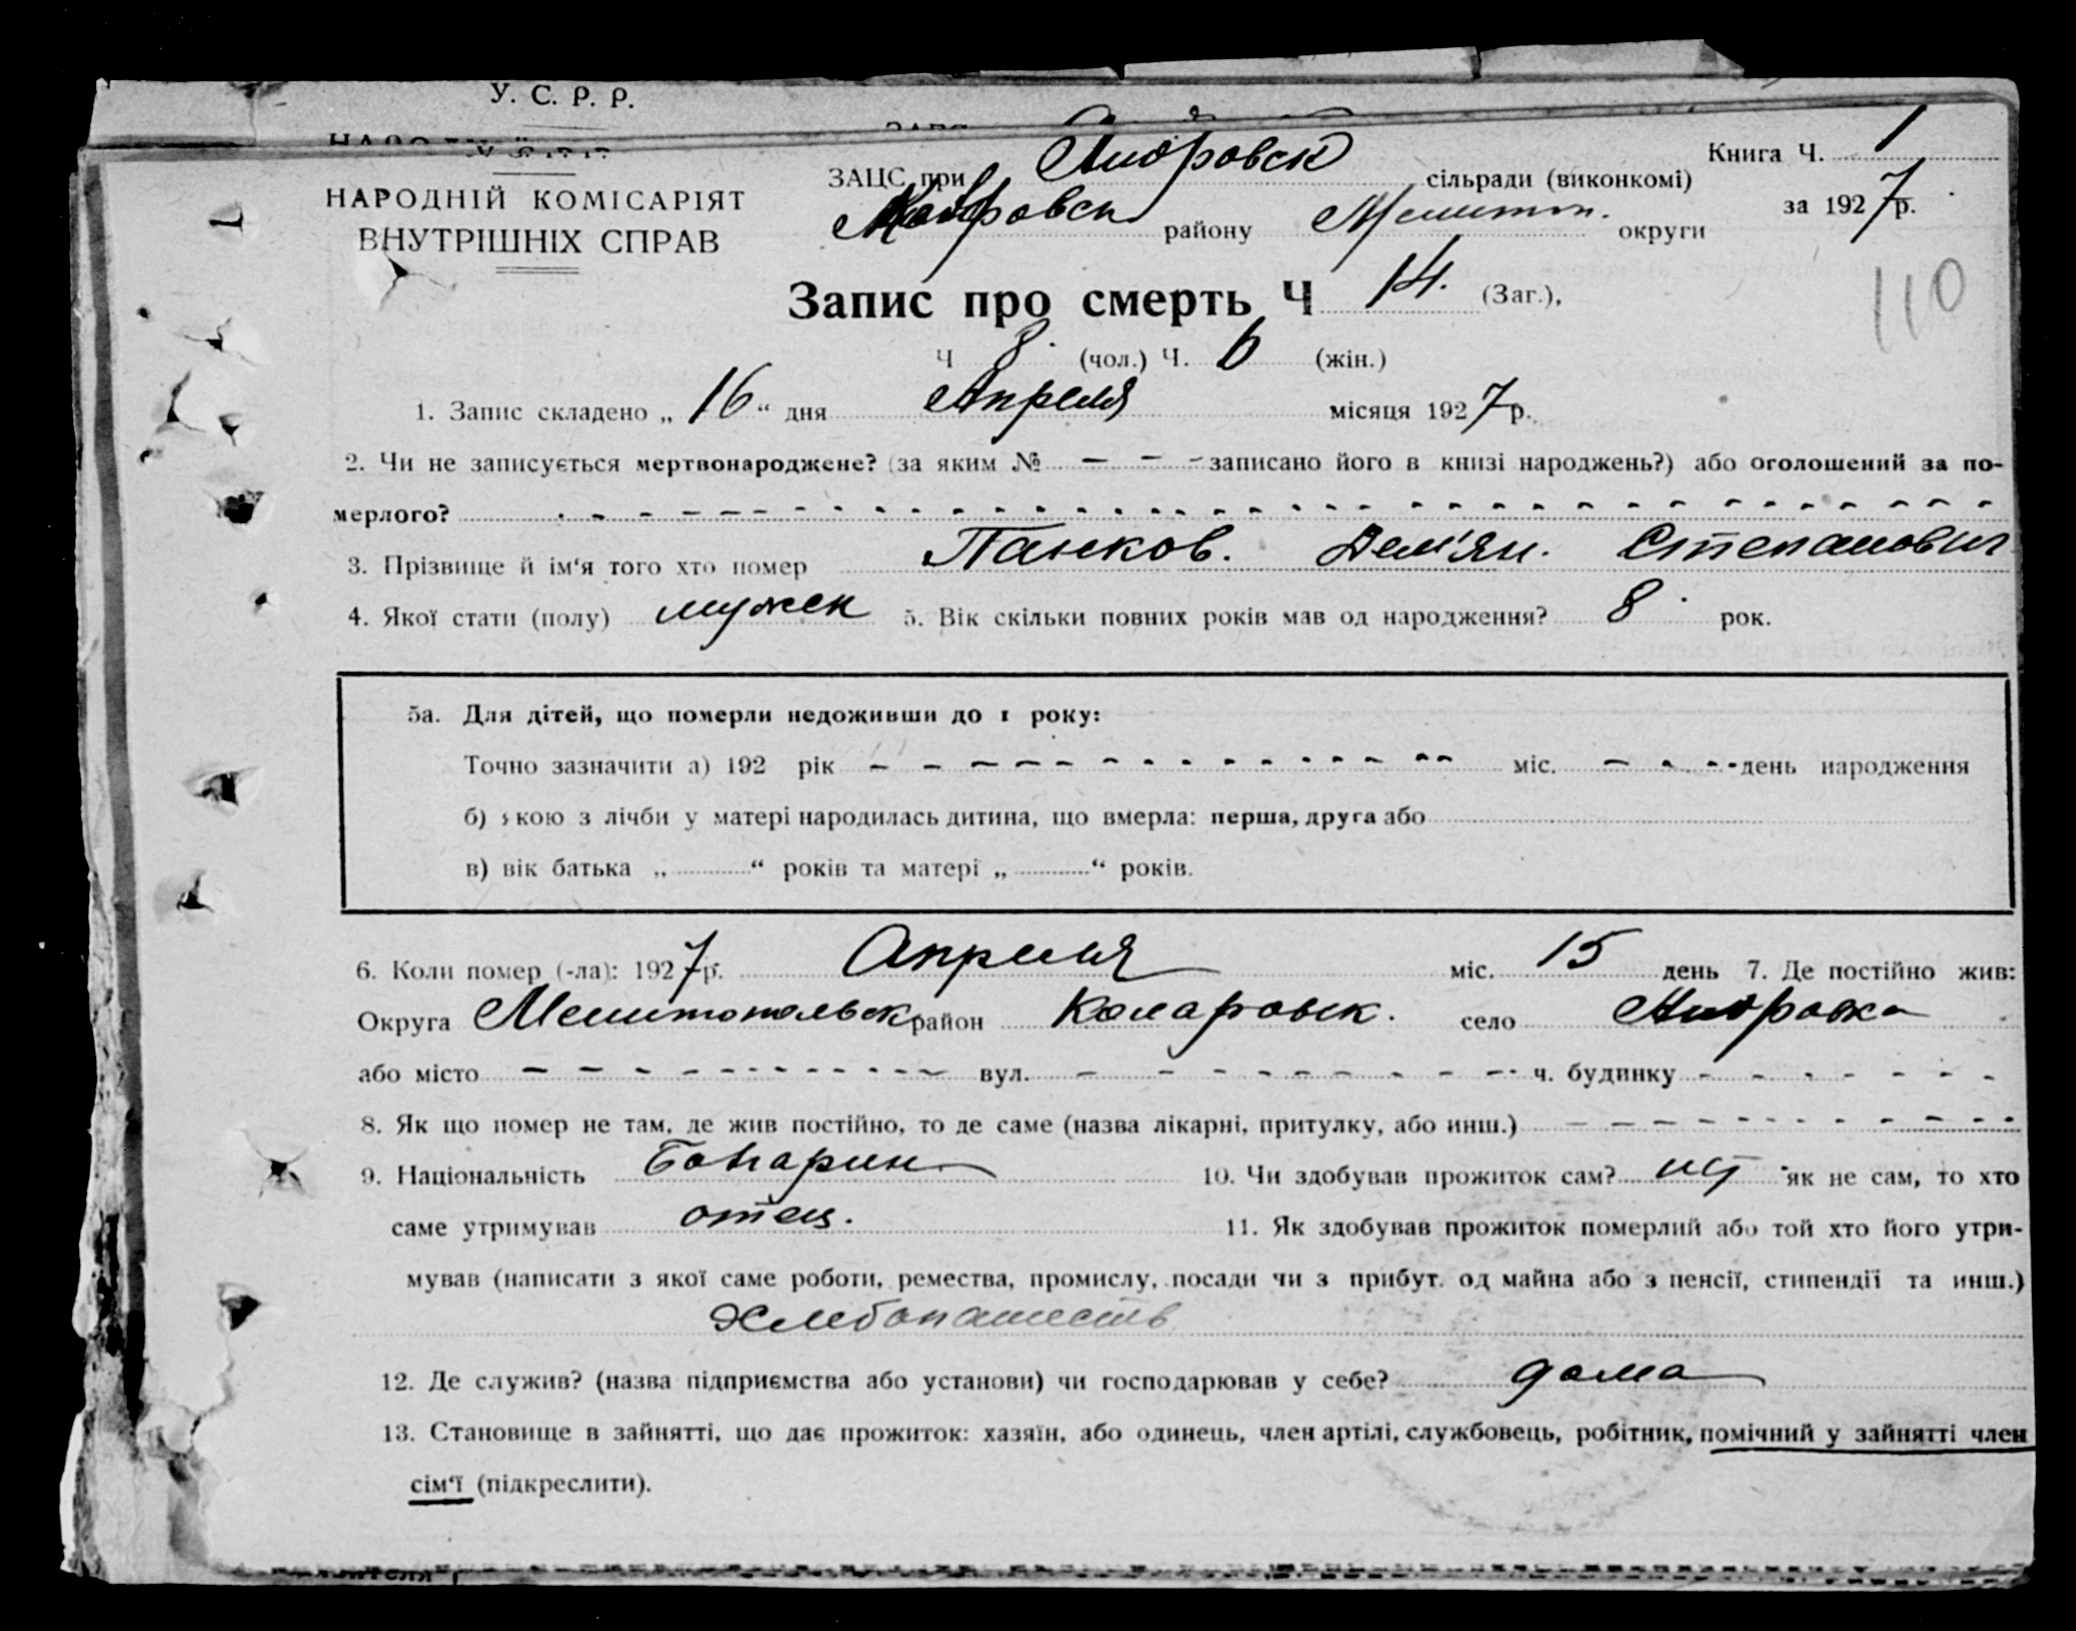 У. С. Р. Р.
Книга Ч. 1
НАРОДНІЙ КОМІСАРІЯТ
ВНУТРІШНІХ СПРАВ
ЗАЦС при Андровск сільради (виконкомі)
за 1927 р.
району Мелитоп. округи
110
Запис про смерть Ч 14. (Заг.),
Ч 8. (чол.) Ч. 6 (жін.)
1. Запис складено „ 16 “ дня Апреля місяця 1927 р.
2. Чи не записується мертвонароджене? (за яким № — — — записано його в книзі народжень?) або оголошений за по-
мерлого?
3. Прізвище й ім‘я того хто помер Панков. Дем'ян. Степанович
4. Якої стати (полу) мужск 5. Вік скільки повних років мав од народження? 8. рок.
5а. Для дітей, що померли недоживши до 1 року:
Точно зазначити а) 192 рік міс. день народження
б) якою з лічби у матері народилась дитина, що вмерла: перша, друга або
в) вік батька „ “ років та матері „ “ років.
6. Коли помер (-ла): 1927 р. Апреля міс. 15 день 7. Де постійно жив:
Округа Мелитопольск район Коларовск. село Андровка
або місто вул. ч. будинку
8. Як що помер не там, де жив постійно, то де саме (назва лікарні, притулку, або инш.)
9. Національність Болгарин 10. Чи здобував прожиток сам? нет як не сам, то хто
саме утримував отец. 11. Як здобував прожиток померлий або той хто його утри-
мував (написати з якої саме роботи, ремества, промислу, посади чи з прибут. од майна або з пенсії, стипендії та инш.)
Хлебопашеств
12. Де служив? (назва підприємства або установи) чи господарював у себе? дома
13. Становище в зайнятті, що дає прожиток: хазяїн, або одинець, член артілі, службовець, робітник, помічний у зайнятті член
сім‘ї (підкреслити).